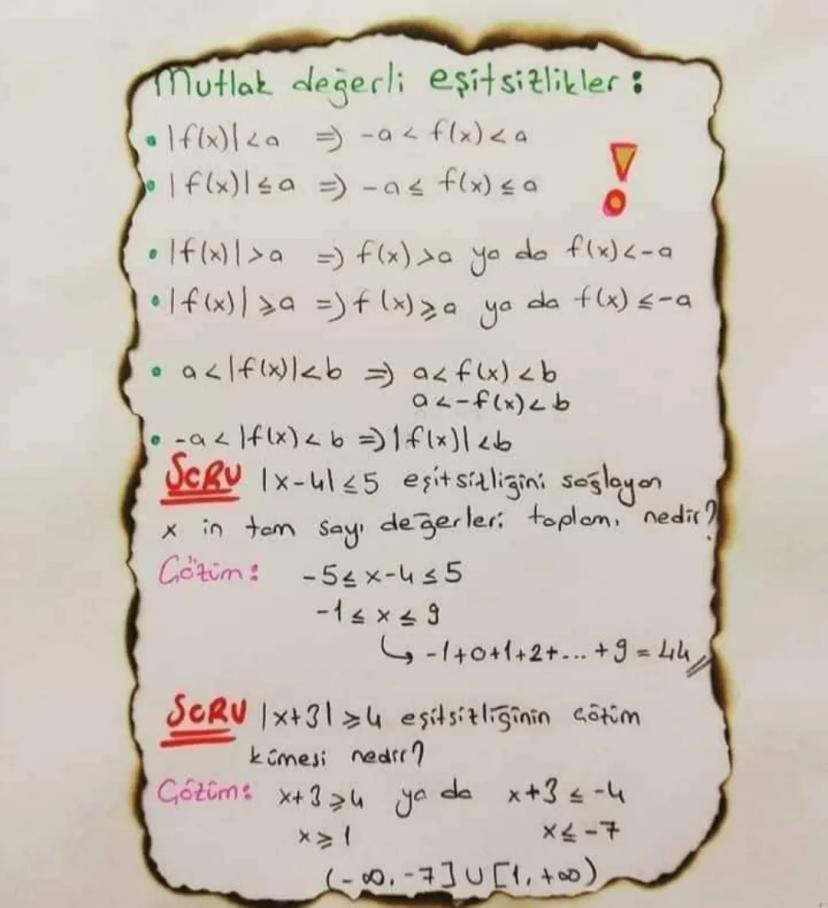 Mutlak değerli eşitsizlikler:
• |f(x)|<a ⇒ -a < f(x) < a
• |f(x)|≤a ⇒ -a ≤ f(x) ≤ a
!
• |f(x)|>a ⇒ f(x)>a ya da f(x)<-a
• |f(x)|≥a ⇒ f(x)≥a ya da f(x)≤-a
• a<|f(x)|<b ⇒ a<f(x)<b
a<-f(x)<b
• -a<|f(x)<b ⇒ |f(x)|<b
SORU |x-4|≤5 eşitsizliğini sağlayan
x in tam sayı değerleri toplamı nedir?
Çözüm: -5≤x-4≤5
-1≤x≤9
↳ -1+0+1+2+...+9=44
SORU |x+3|≥4 eşitsizliğinin çözüm
kümesi nedir?
Çözüm: x+3≥4 ya da x+3≤-4
x≥1 x≤-7
(-∞,-7]∪[1,+∞)